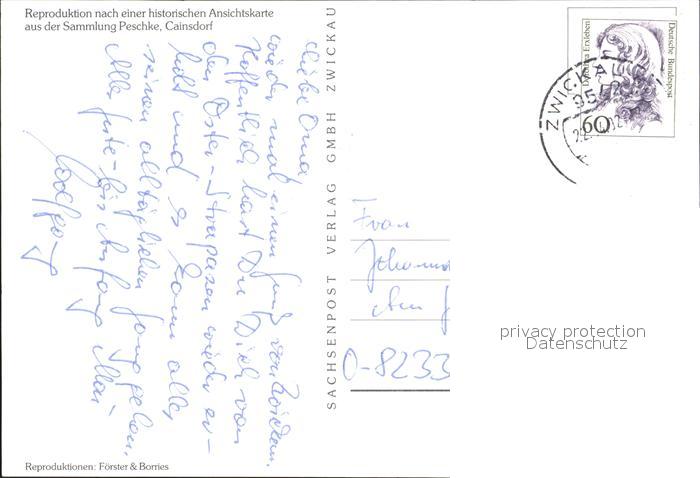 Reproduktion nach einer historischen Ansichtskarte
aus der Sammlung Peschke, Cainsdorf
Liebe Oma!
wieder mal einen Gruß von Zwickau.
Hoffentlich hast Du Dich von
den Oster-Strapazen wieder er-
holt und es kann alles
seinen alltäglichen Gang gehen.
Alles Gute - bis Anfang Mai
Reproduktionen: Förster & Borries
SACHSENPOST VERLAG GMBH ZWICKAU
Deutsche Bundespost
Dorothea Erxleben
60
ZWICKAU
Frau
O-8233
privacy protection
Datenschutz